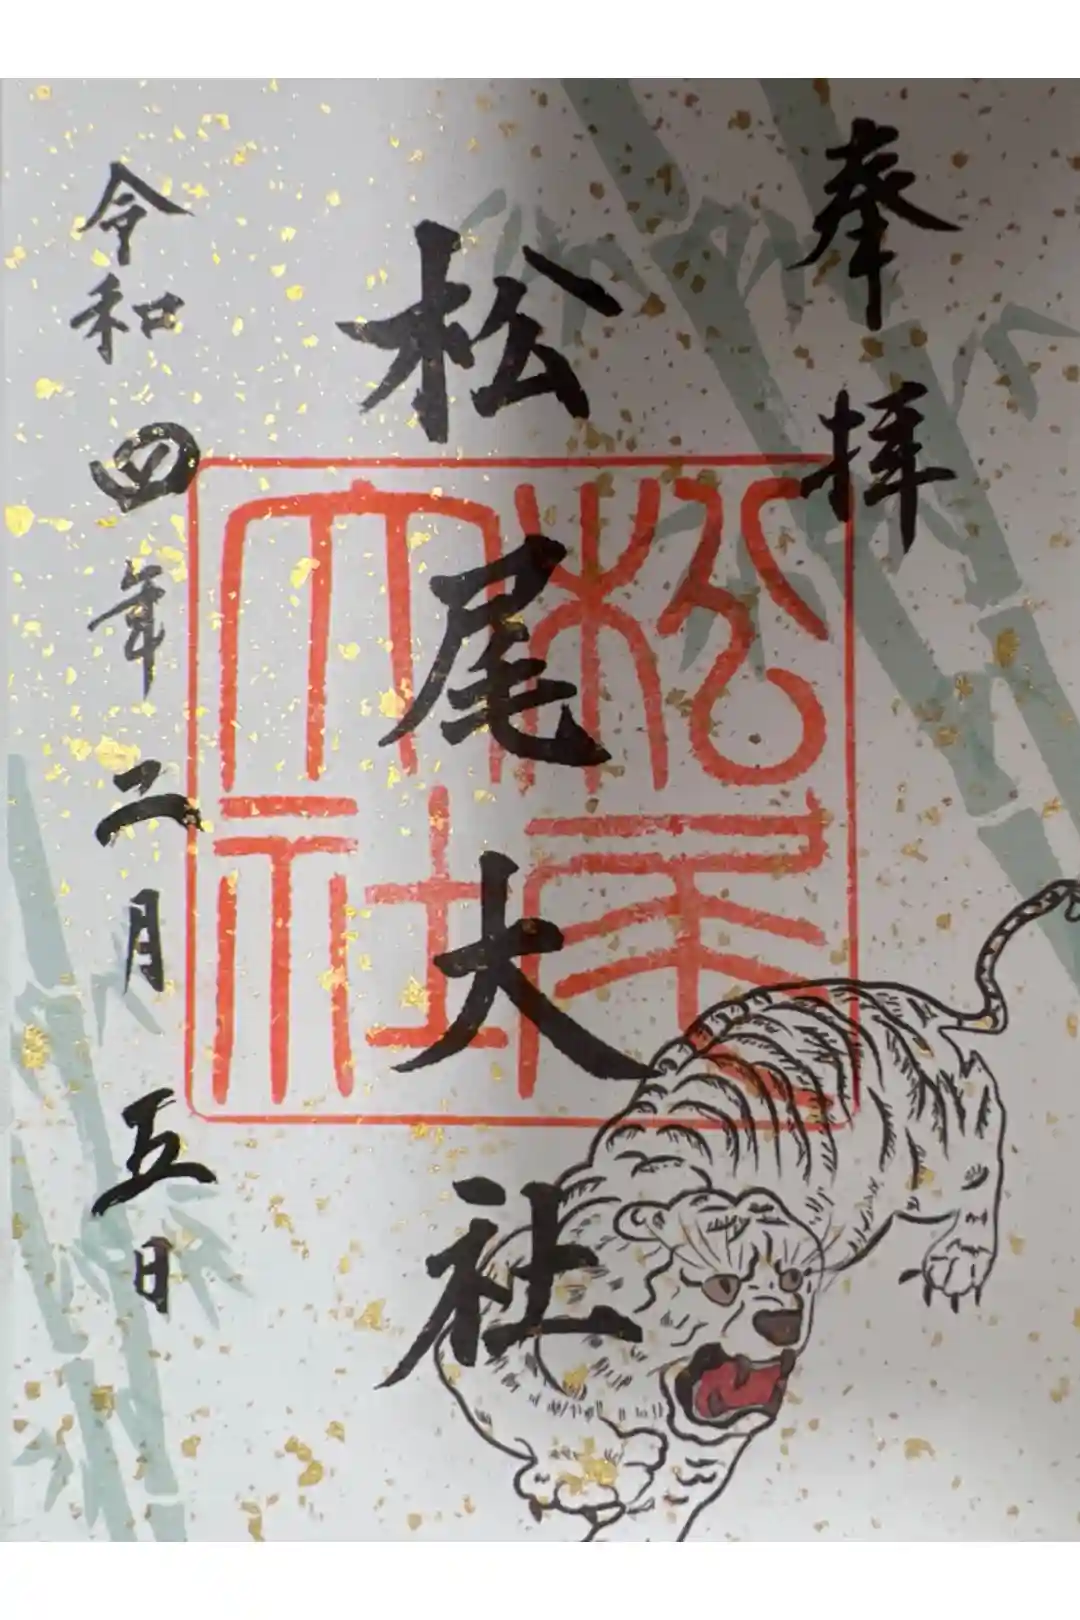 奉拝
松尾大社
松尾大社
令和四年二月五日